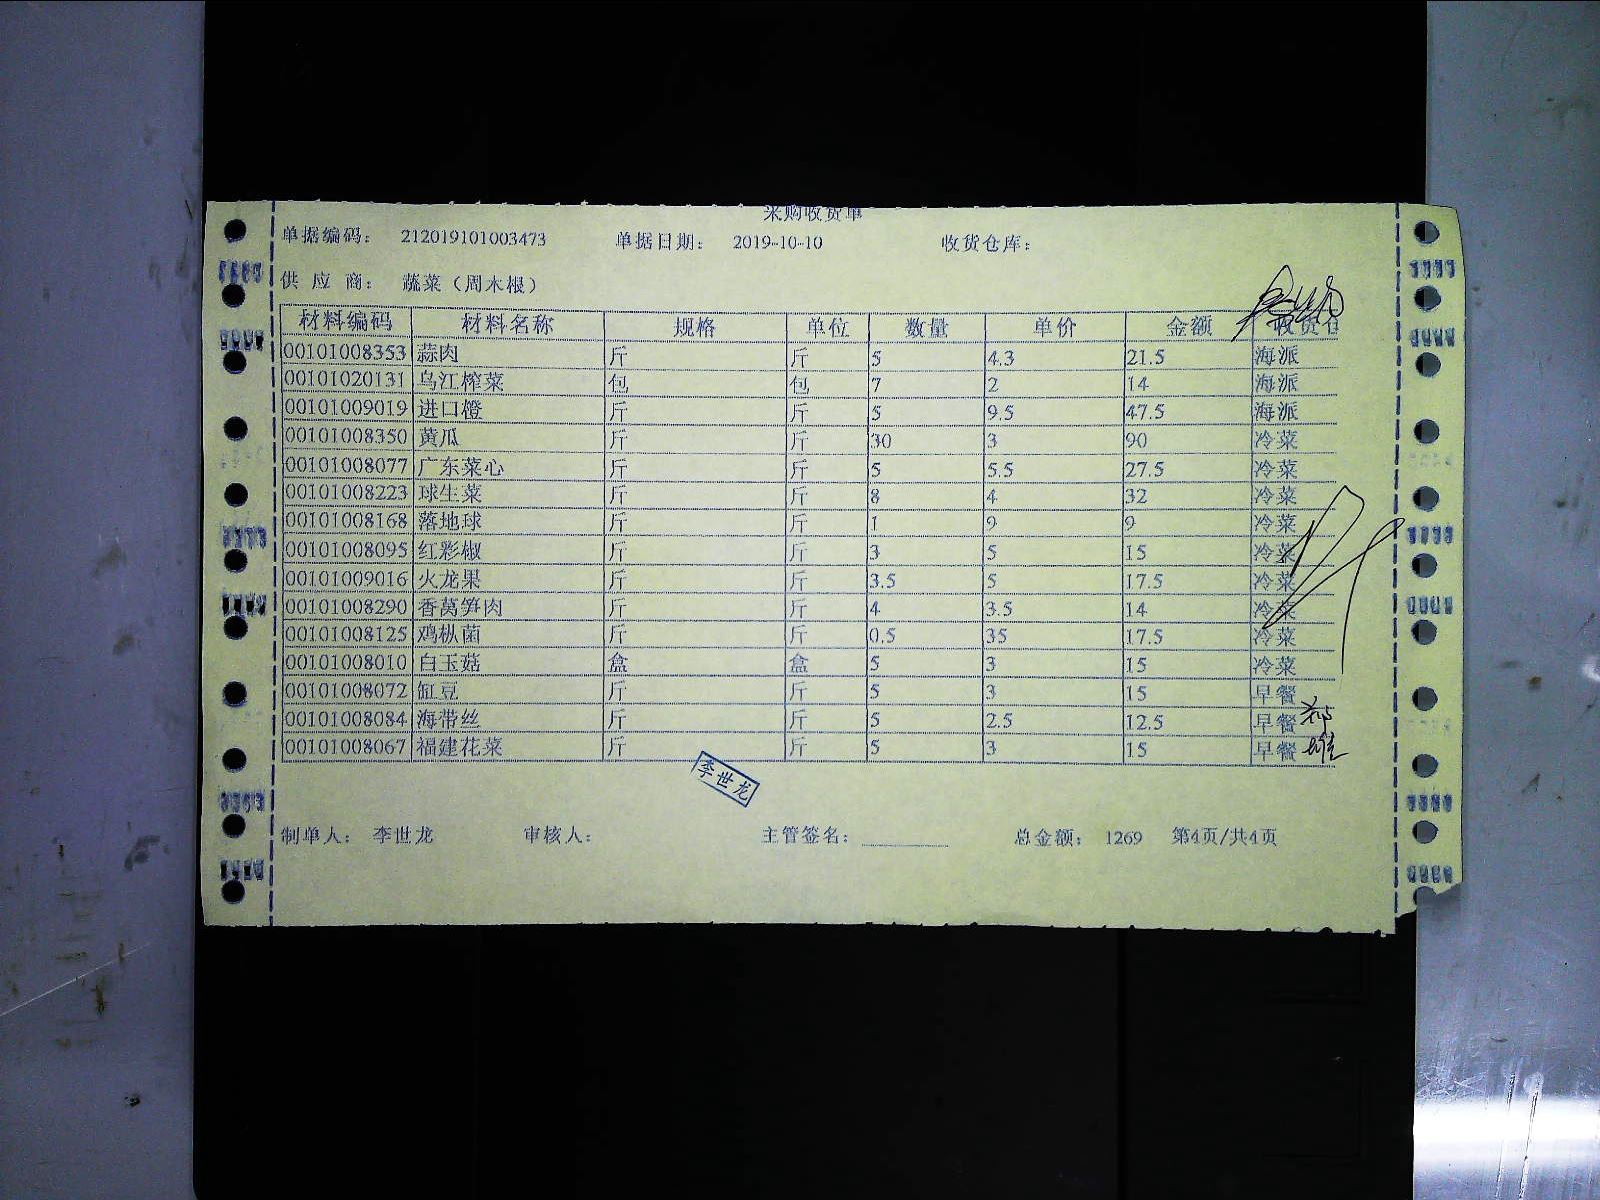 采购收货单
单据编码： 212019101003473 单据日期： 2019-10-10 收货仓库：
供 应 商： 蔬菜（周木根）
材料编码 材料名称 规格 单位 数量 单价 金额 收货仓
00101008353 蒜肉 斤 斤 5 4.3 21.5 海派
00101020131 乌江榨菜 包 包 7 2 14 海派
00101009019 进口橙 斤 斤 5 9.5 47.5 海派
00101008350 黄瓜 斤 斤 30 3 90 冷菜
00101008077 广东菜心 斤 斤 5 5.5 27.5 冷菜
00101008223 球生菜 斤 斤 8 4 32 冷菜
00101008168 落地球 斤 斤 1 9 9 冷菜
00101008095 红彩椒 斤 斤 3 5 15 冷菜
00101009016 火龙果 斤 斤 3.5 5 17.5 冷菜
00101008290 香莴笋肉 斤 斤 4 3.5 14 冷菜
00101008125 鸡枞菌 斤 斤 0.5 35 17.5 冷菜
00101008010 白玉菇 盒 盒 5 3 15 冷菜
00101008072 缸豆 斤 斤 5 3 15 早餐
00101008084 海带丝 斤 斤 5 2.5 12.5 早餐
00101008067 福建花菜 斤 斤 5 3 15 早餐
李世龙
制单人： 李世龙 审核人： 主管签名： 总金额： 1269 第4页/共4页